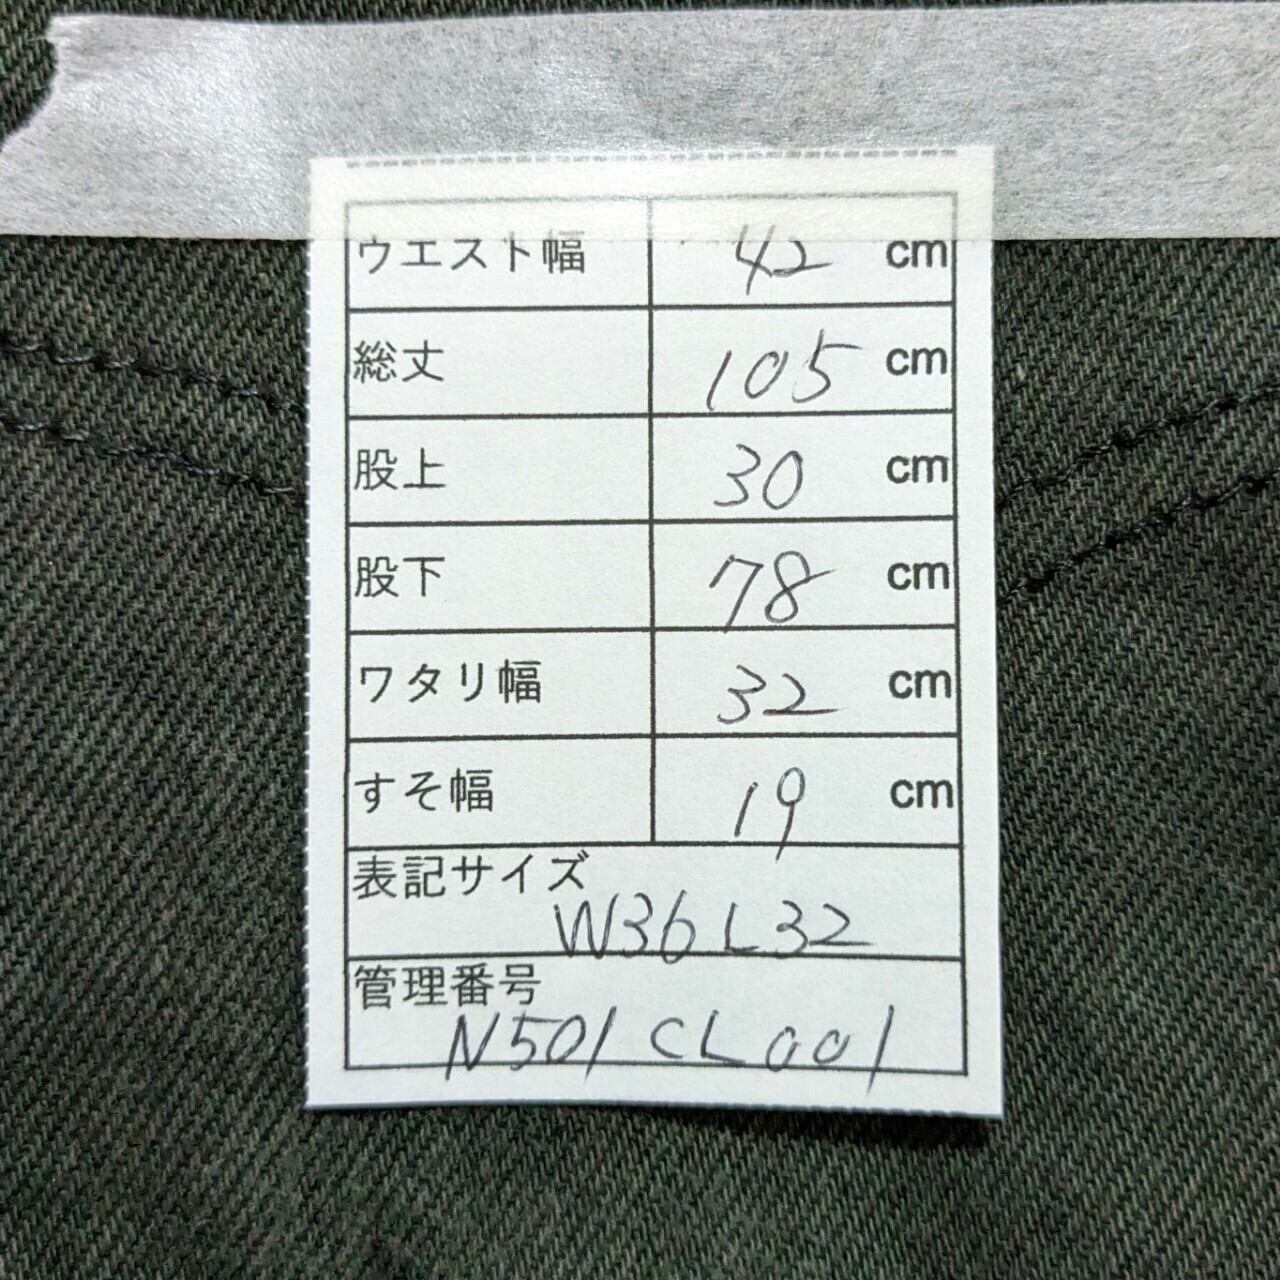 ウエスト幅 42 cm
総丈 105 cm
股上 30 cm
股下 78 cm
ワタリ幅 32 cm
すそ幅 19 cm
表記サイズ
W36 L32
管理番号
N501 CL001